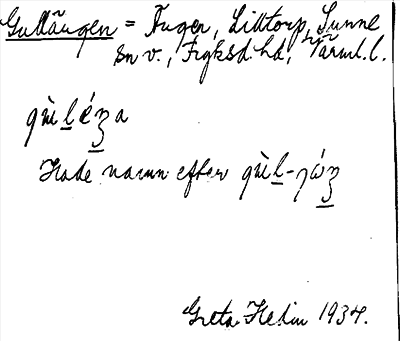 Gullängen = Ängen, Lilltorp, Sunne
sn v., Fryksd. hd, Värml. l.
gùḷéʒa
Hade namn efter gùḷ-
Greta Hedin 1934.